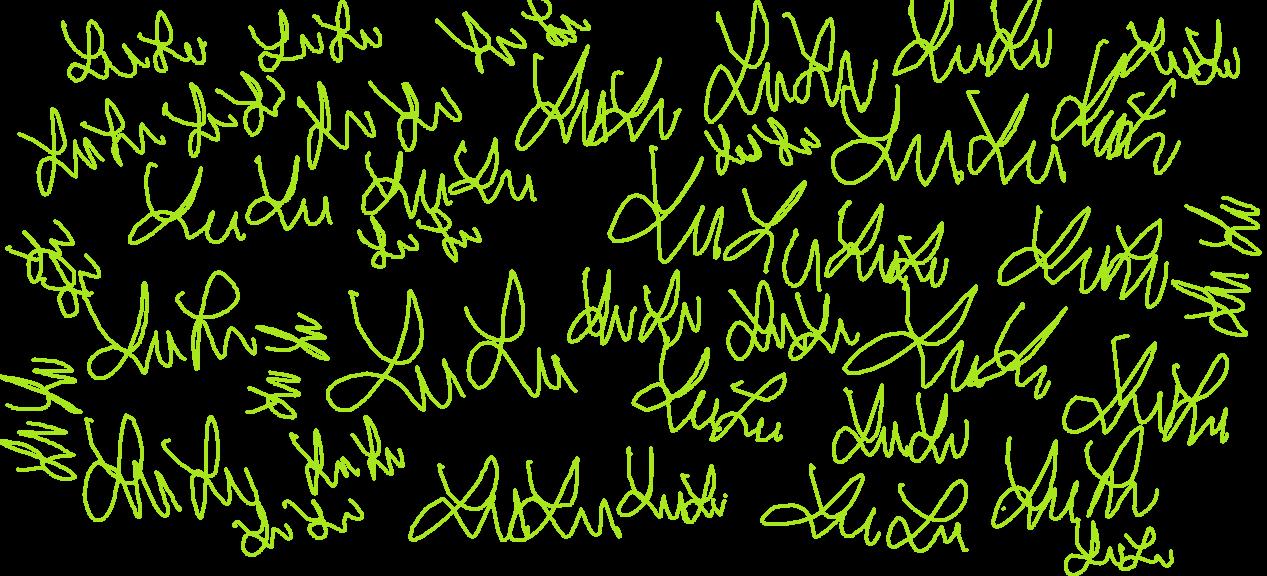 LuLu LuLu LuLu LuLu LuLu LuLu
LuLu LuLu LuLu LuLu LuLu LuLu LuLu
LuLu LuLu LuLu LuLu LuLu LuLu LuLu
LuLu LuLu LuLu LuLu LuLu LuLu LuLu
LuLu LuLu LuLu LuLu LuLu
LuLu LuLu LuLu LuLu LuLu LuLu
LuLu LuLu